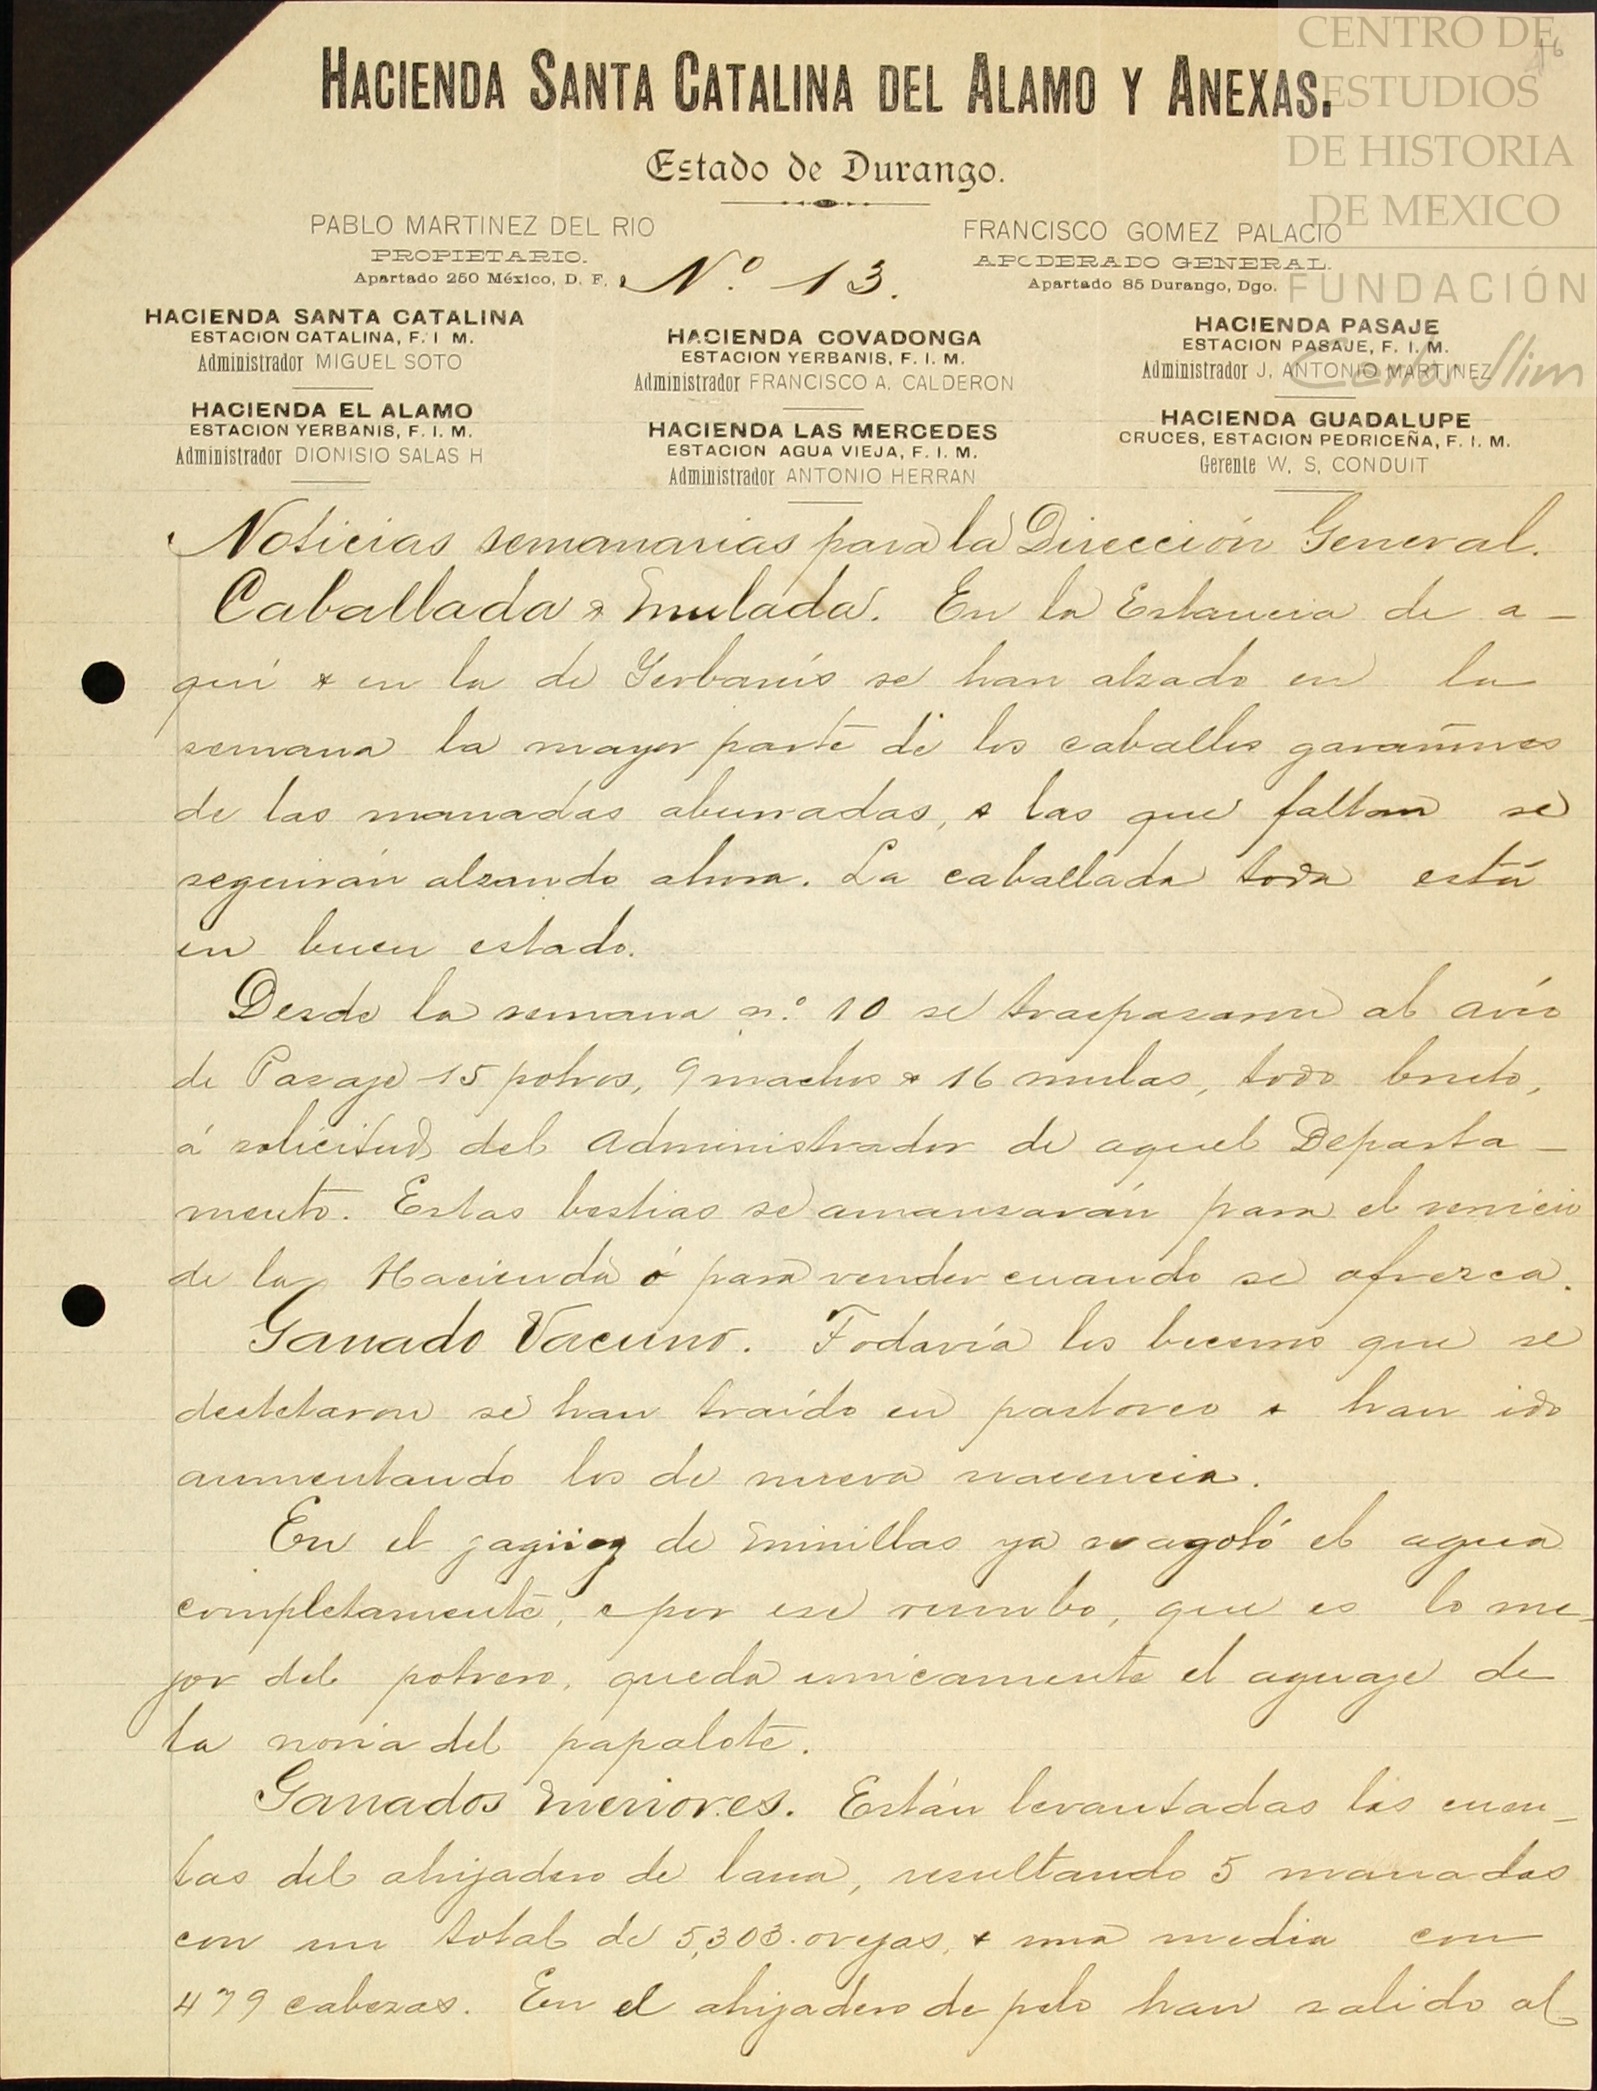 CENTRO DE
ESTUDIOS
DE HISTORIA
DE MEXICO
FUNDACIÓN
Carlos Slim
HACIENDA SANTA CATALINA DEL ALAMO Y ANEXAS.
Estado de Durango.
PABLO MARTINEZ DEL RIO
PROPIETARIO.
Apartado 250 México, D. F.
Nº 13.
FRANCISCO GOMEZ PALACIO
APODERADO GENERAL.
Apartado 85 Durango, Dgo.
HACIENDA SANTA CATALINA
ESTACION CATALINA, F. I M.
Administrador MIGUEL SOTO
HACIENDA EL ALAMO
ESTACION YERBANIS, F. I. M.
Administrador DIONISIO SALAS H
HACIENDA COVADONGA
ESTACION YERBANIS, F. I. M.
Administrador FRANCISCO A. CALDERON
HACIENDA LAS MERCEDES
ESTACION AGUA VIEJA, F. I. M.
Administrador ANTONIO HERRAN
HACIENDA PASAJE
ESTACION PASAJE, F. I. M.
Administrador J. ANTONIO MARTINEZ
HACIENDA GUADALUPE
CRUCES, ESTACION PEDRICEÑA, F. I. M.
Gerente W. S. CONDUIT
Noticias semanarias para la Dirección General.
Caballada & mulada. En la Estancia de a-
quí & en la de Yerbanís se han alzado en la
semana la mayor parte de los caballos garañones
de las manadas aburradas, & las que faltan se
seguirán alzando ahora. La caballada toda está
en buen estado.
Desde la semana n.º 10 se traspasaron al avío
de Pasaje 15 potros, 9 machos & 16 mulas, todo bruto,
á solicitud del Administrador de aquel Departa-
mento. Estas bestias se amansarán para el servicio
de la Hacienda ó para vender cuando se ofrezca.
Ganado Vacuno. Todavía los becerros que se
destetaron se han traído en pastoreo & han ido
aumentando los de nueva nacencia.
En el jagüey de Minillas ya se agotó el agua
completamente, & por ese rumbo, que es lo me-
jor del potrero, queda unicamente el aguaje de
la noria del papalote.
Ganados menores. Están levantadas las cuen-
tas del ahijadero de lana, resultando 5 manadas
con un total de 5,303 ovejas, & una media con
479 cabezas. En el ahijadero de pelo han salido al